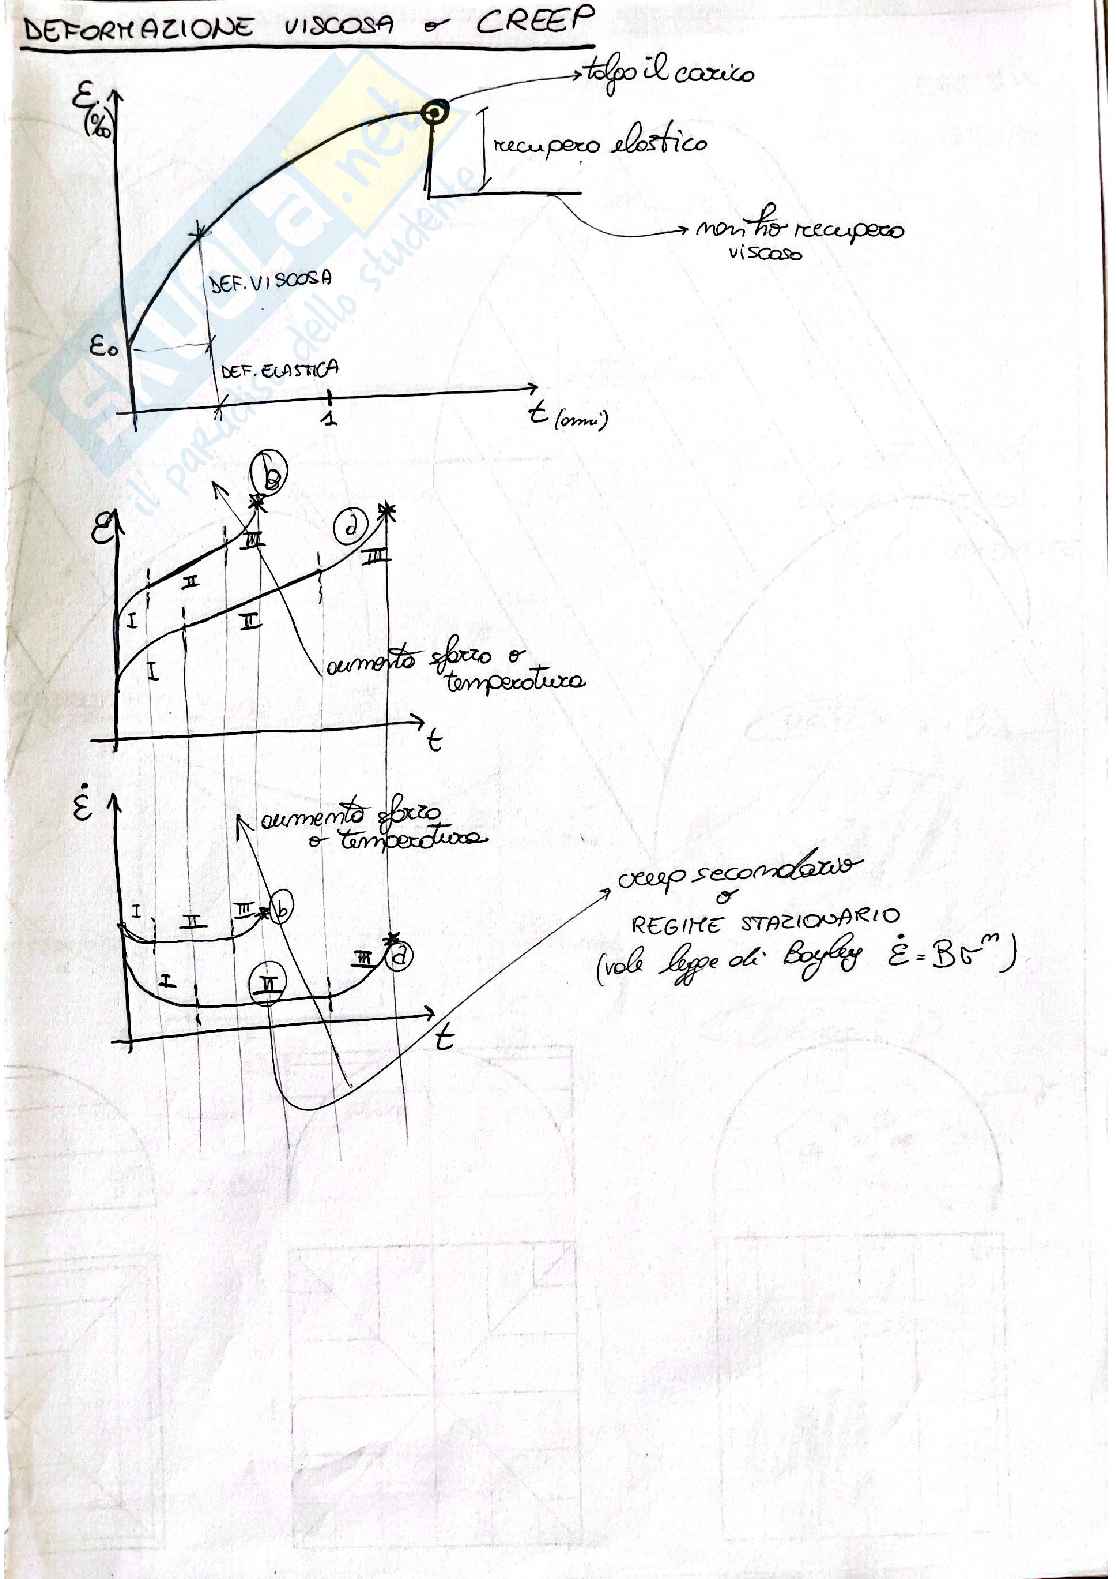 DEFORMAZIONE VISCOSA o CREEP
ε
(‰)
tolgo il carico
recupero elastico
non ho recupero
viscoso
DEF. VISCOSA
ε₀
DEF. ELASTICA
1
t (anni)
SKUOLA.net
il paradiso dello studente
b
ε
a
III
III
II
I
II
I
aumento sforzo o
temperatura
t
ε̇
aumento sforzo
o temperatura
I
II
III
b
creep secondario
o
REGIME STAZIONARIO
(vale legge di Bayley ε̇ = Bσᵐ)
I
II
III
a
t